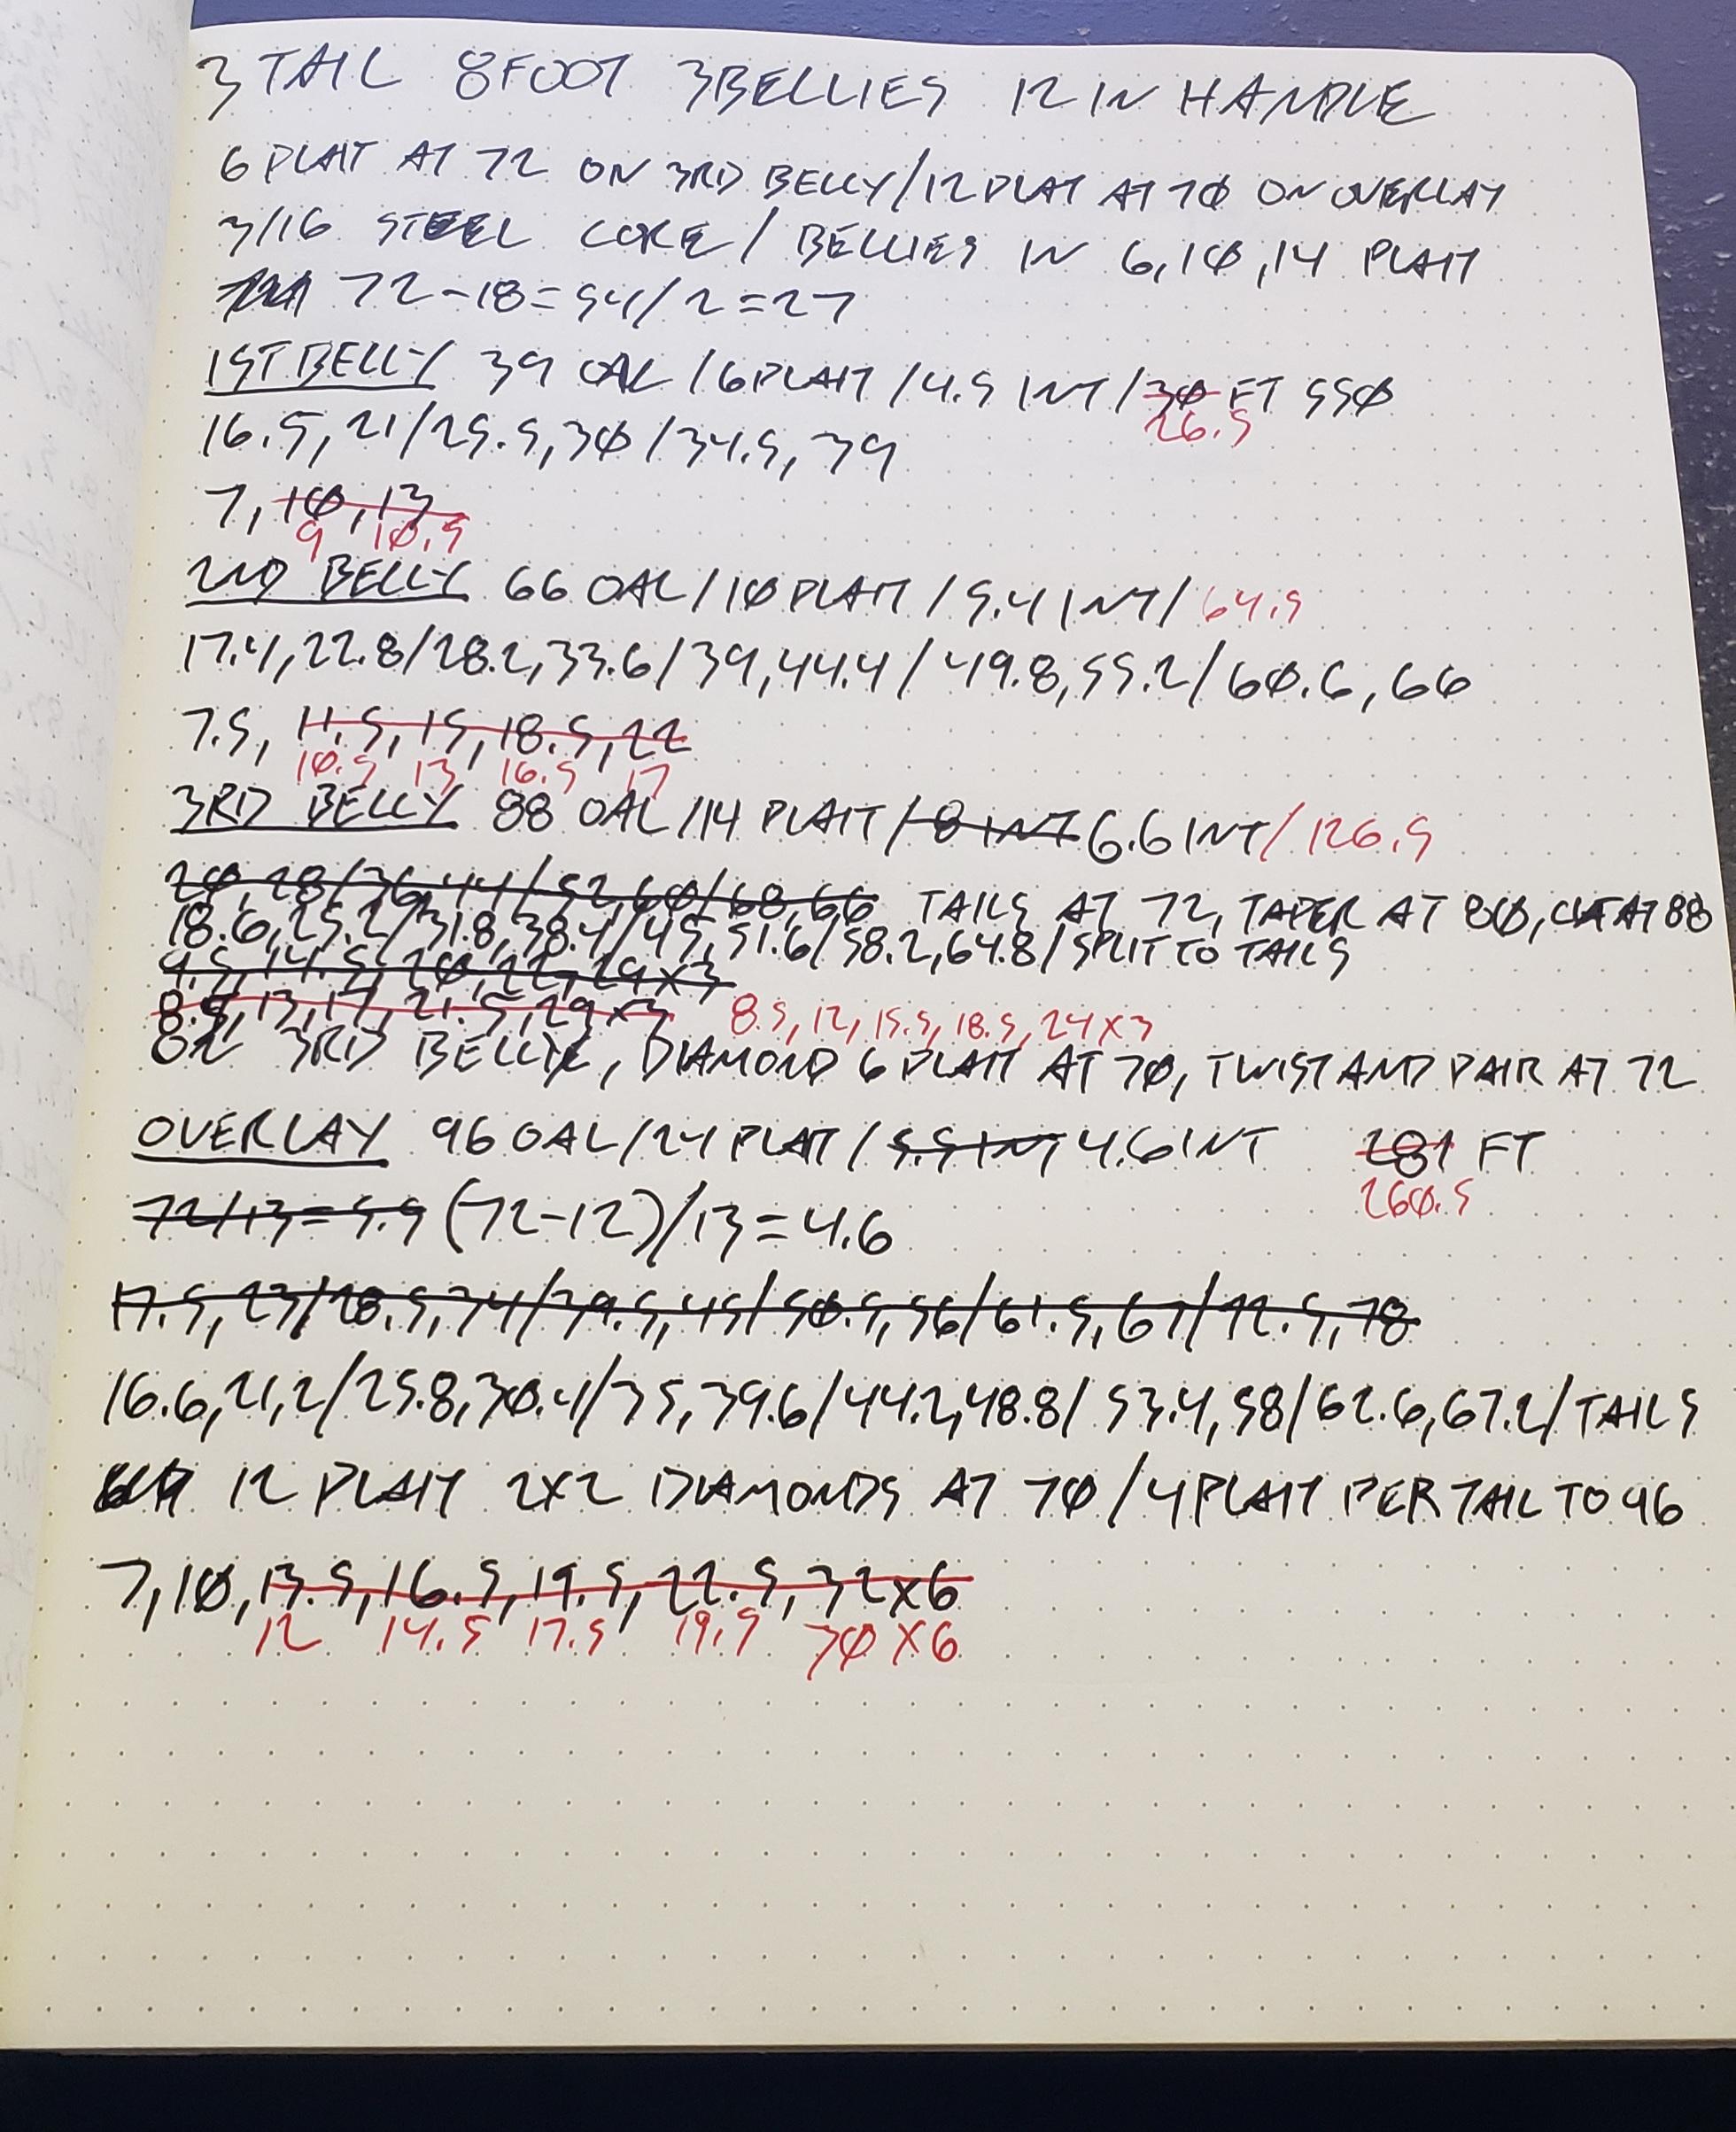 3 TAIL 8 FOOT 3 BELLIES 12 IN HANDLE
6 PLAIT AT 72 ON 3RD BELLY/12 PLAT AT 70 ON OVERLAY
3/16 STEEL CORE/BELLIES IN 6,10,14 PLAIT
72-18=54/2=27
1ST BELLY 39 OAL/6 PLAIT/4.5 INT/30 FT 550
26.5
16.5,21/25.5,30/34.5,39
7,10,13
9 10.5
2ND BELLY 66 OAL/10 PLAIT/5.4 INT/64.5
17.4,22.8/28.2,33.6/39,44.4/49.8,55.2/60.6,66
7.5,11.5,15,18.5,22
10.5 13 16.5 17
3RD BELLY 88 OAL/14 PLAIT/8 INT 6.6 INT/126.5
20,28/36,44/52,60/68,66 TAILS AT 72, TAPER AT 80, CUT AT 88
18.6,25.2/31.8,38.4/45,51.6/58.2,64.8/SPLIT TO TAILS
9.5,14.5,20,22,29x3
8.5,13,17,21.5,29x3 8.5,12,15.5,18.5,24x3
3RD BELLY, DIAMOND 6 PLAIT AT 70, TWIST AND PAIR AT 72
OVERLAY 96 OAL/24 PLAT/5.5 INT 4.6 INT 281 FT
260.5
72/13=5.5 (72-12)/13=4.6
17.5,23/28.5,34/39.5,45/50.5,56/61.5,67/72.5,78
16.6,21.2/25.8,30.4/35,39.6/44.2,48.8/53.4,58/62.6,67.2/TAILS
12 PLAIT 2X2 DIAMONDS AT 70/4 PLAIT PER TAIL TO 96
7,10,13.5,16.5,19.5,22.5,32x6
12 14.5 17.5 19.5 30 X6